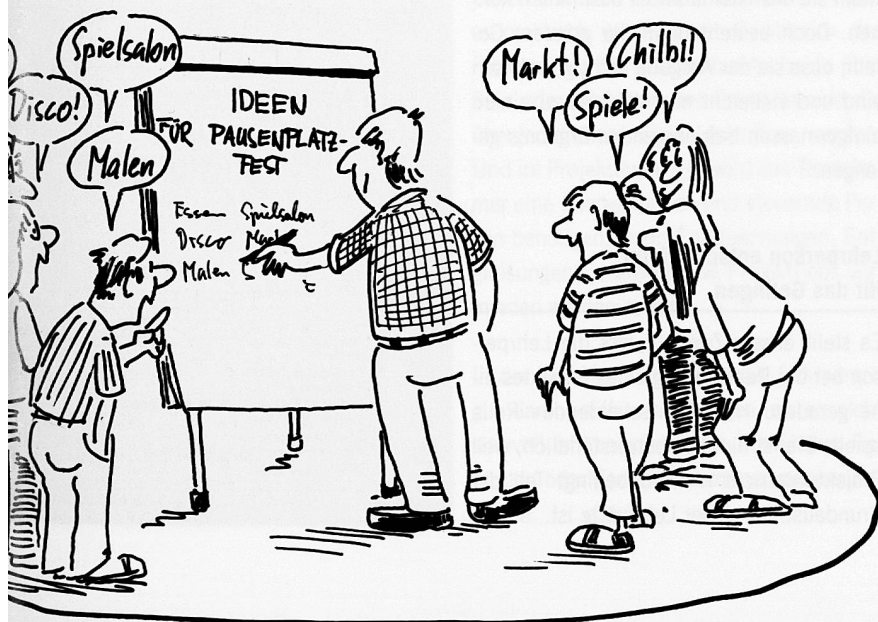 Spielsalon
Disco!
Malen
IDEEN
FÜR PAUSENPLATZ-
FEST
Essen Spielsalon
Disco
Malen
Markt!
Chilbi!
Spiele!